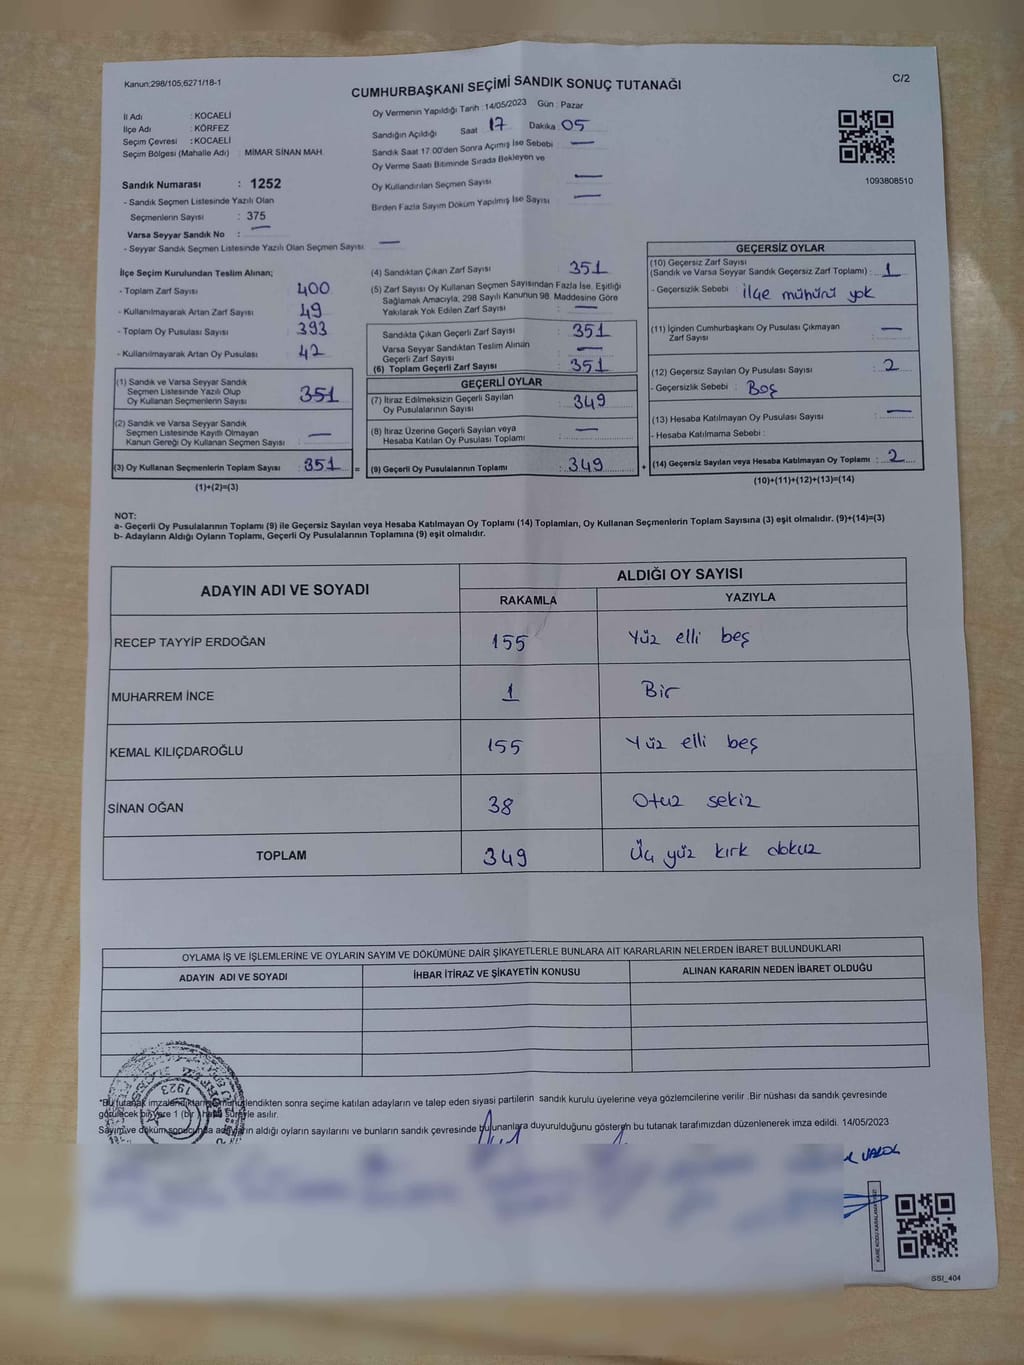 Kanun:298/105,6271/18-1
C/2
CUMHURBAŞKANI SEÇİMİ SANDIK SONUÇ TUTANAĞI
İl Adı : KOCAELİ
İlçe Adı : KÖRFEZ
Seçim Çevresi : KOCAELİ
Seçim Bölgesi (Mahalle Adı) : MİMAR SİNAN MAH.
Sandık Numarası : 1252
- Sandık Seçmen Listesinde Yazılı Olan
Seçmenlerin Sayısı : 375
Varsa Seyyar Sandık No : —
- Seyyar Sandık Seçmen Listesinde Yazılı Olan Seçmen Sayısı : —
Oy Vermenin Yapıldığı Tarih : 14/05/2023 Gün : Pazar
Sandığın Açıldığı Saat 17 Dakika 05
Sandık Saat 17.00'den Sonra Açmış İse Sebebi : —
Oy Verme Saati Bitiminde Sırada Bekleyen ve
Oy Kullandırılan Seçmen Sayısı —
Birden Fazla Sayım Döküm Yapılmış İse Sayısı —
1093808510
İlçe Seçim Kurulundan Teslim Alınan;
- Toplam Zarf Sayısı : 400
- Kullanılmayarak Artan Zarf Sayısı : 49
- Toplam Oy Pusulası Sayısı : 393
- Kullanılmayarak Artan Oy Pusulası : 42
(1) Sandık ve Varsa Seyyar Sandık
Seçmen Listesinde Yazılı Olup
Oy Kullanan Seçmenlerin Sayısı : 351
(2) Sandık ve Varsa Seyyar Sandık
Seçmen Listesinde Kayıtlı Olmayan
Kanun Gereği Oy Kullanan Seçmen Sayısı : —
(3) Oy Kullanan Seçmenlerin Toplam Sayısı : 351 =
(1)+(2)=(3)
(4) Sandıktan Çıkan Zarf Sayısı : 351
(5) Zarf Sayısı Oy Kullanan Seçmen Sayısından Fazla İse, Eşitliği
Sağlamak Amacıyla, 298 Sayılı Kanunun 98. Maddesine Göre
Yakılarak Yok Edilen Zarf Sayısı : —
Sandıkta Çıkan Geçerli Zarf Sayısı : 351
Varsa Seyyar Sandıktan Teslim Alınan
Geçerli Zarf Sayısı : —
(6) Toplam Geçerli Zarf Sayısı : 351
GEÇERLİ OYLAR
(7) İtiraz Edilmeksizin Geçerli Sayılan
Oy Pusulalarının Sayısı : 349
(8) İtiraz Üzerine Geçerli Sayılan veya
Hesaba Katılan Oy Pusulası Toplamı : —
(9) Geçerli Oy Pusulalarının Toplamı : 349 +
GEÇERSİZ OYLAR
(10) Geçersiz Zarf Sayısı
(Sandık ve Varsa Seyyar Sandık Geçersiz Zarf Toplamı) : 1
- Geçersizlik Sebebi : İlçe mühürü yok
(11) İçinden Cumhurbaşkanı Oy Pusulası Çıkmayan
Zarf Sayısı : —
(12) Geçersiz Sayılan Oy Pusulası Sayısı : 2
- Geçersizlik Sebebi : Boş
(13) Hesaba Katılmayan Oy Pusulası Sayısı : —
- Hesaba Katılmama Sebebi :
(14) Geçersiz Sayılan veya Hesaba Katılmayan Oy Toplamı : 2
(10)+(11)+(12)+(13)=(14)
NOT:
a- Geçerli Oy Pusulalarının Toplamı (9) ile Geçersiz Sayılan veya Hesaba Katılmayan Oy Toplamı (14) Toplamları, Oy Kullanan Seçmenlerin Toplam Sayısına (3) eşit olmalıdır. (9)+(14)=(3)
b- Adayların Aldığı Oyların Toplamı, Geçerli Oy Pusulalarının Toplamına (9) eşit olmalıdır.
ADAYIN ADI VE SOYADI ALDIĞI OY SAYISI
RAKAMLA YAZIYLA
RECEP TAYYİP ERDOĞAN 155 Yüz elli beş
MUHARREM İNCE 1 Bir
KEMAL KILIÇDAROĞLU 155 Yüz elli beş
SİNAN OĞAN 38 Otuz sekiz
TOPLAM 349 Üç yüz kırk dokuz
OYLAMA İŞ VE İŞLEMLERİNE VE OYLARIN SAYIM VE DÖKÜMÜNE DAİR ŞİKAYETLERLE BUNLARA AİT KARARLARIN NELERDEN İBARET BULUNDUKLARI
ADAYIN ADI VE SOYADI İHBAR İTİRAZ VE ŞİKAYETİN KONUSU ALINAN KARARIN NEDEN İBARET OLDUĞU
1923
*Bu tutanak imzalandıktan mühürlendikten sonra seçime katılan adayların ve talep eden siyasi partilerin sandık kurulu üyelerine veya gözlemcilerine verilir. Bir nüshası da sandık çevresinde
görülecek bir yere 1 (bir) hafta süreyle asılır.
Sayım ve döküm sonucunda adayların aldığı oyların sayılarını ve bunların sandık çevresinde bulunanlara duyurulduğunu gösteren bu tutanak tarafımızdan düzenlenerek imza edildi. 14/05/2023
SSI_404